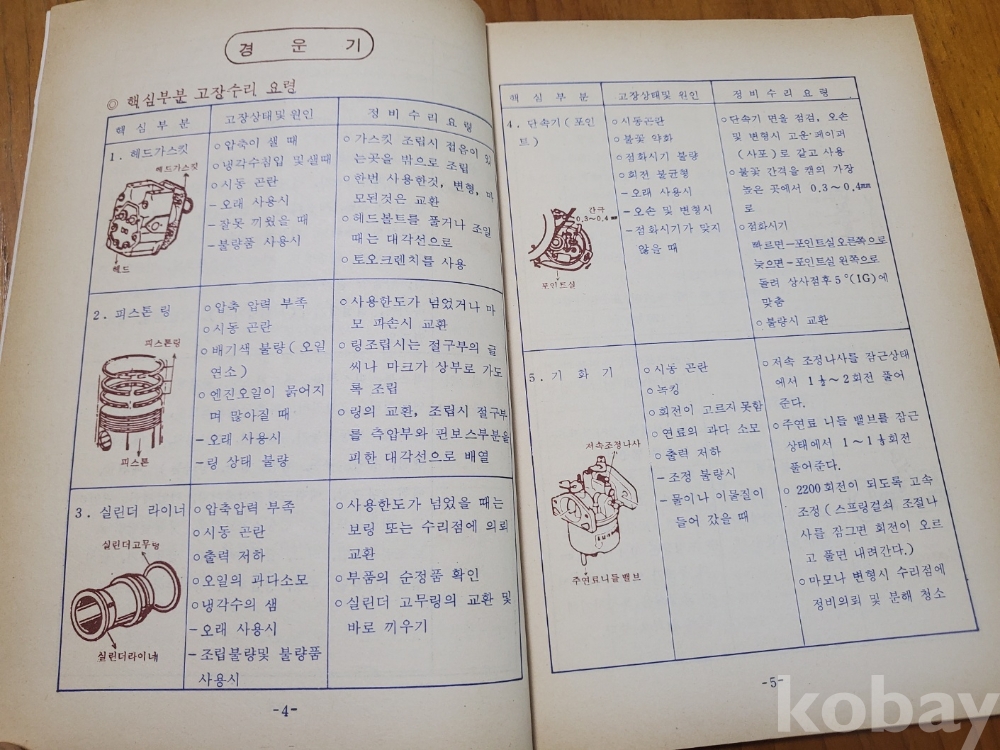 경 운 기
◎ 핵심부분 고장수리 요령
핵 심 부 분
고장상태및 원인
정 비 수 리 요 령
1. 헤드가스킷
헤드가스킷
헤드
○ 압축이 샐 때
○ 냉각수침입 및샐때
○ 시동 곤란
- 오래 사용시
- 잘못 끼웠을 때
- 불량품 사용시
○ 가스킷 조립시 접음이 있
는곳을 밖으로 조립
○ 한번 사용한것, 변형, 마
모된것은 교환
○ 헤드볼트를 풀거나 조일
때는 대각선으로
○ 토오크렌치를 사용
2. 피스톤 링
피스톤링
피스톤
○ 압축 압력 부족
○ 시동 곤란
○ 배기색 불량 ( 오일
연소)
○ 엔진오일이 묽어지
며 많아질 때
- 오래 사용시
- 링 상태 불량
○ 사용한도가 넘었거나 마
모 파손시 교환
○ 링조립시는 절구부의 글
씨나 마크가 상부로 가도
록 조립
○ 링의 교환, 조립시 절구부
를 측압부와 핀보스부분을
피한 대각선으로 배열
3. 실린더 라이너
실린더고무링
실린더라이너
○ 압축압력 부족
○ 시동 곤란
○ 출력 저하
○ 오일의 과다소모
○ 냉각수의 샘
- 오래 사용시
- 조립불량및 불량품
사용시
○ 사용한도가 넘었을 때는
보링 또는 수리점에 의뢰
교환
○ 부품의 순정품 확인
○ 실린더 고무링의 교환 및
바로 끼우기
-4-
핵 심 부 분
고장상태및 원인
정 비 수 리 요 령
4. 단속기 ( 포인
트 )
간극
0.3~0.4㎜
포인트실
○ 시동곤란
○ 불꽃 약화
○ 점화시기 불량
○ 회전 불균형
- 오래 사용시
- 오손 및 변형시
- 점화시기가 맞지
않을 때
○ 단속기 면을 점검, 오손
및 변형시 고운 페이퍼
(사포)로 갈고 사용
○ 불꽃 간격을 캠의 가장
높은 곳에서 0.3~0.4㎜
로
○ 점화시기
빠르면 - 포인트실 오른쪽으로
늦으면 - 포인트실 왼쪽으로
돌려 상사점후 5°(1G)에
맞춤
○ 불량시 교환
5. 기 화 기
저속조정나사
주연료니들밸브
○ 시동 곤란
○ 녹킹
○ 회전이 고르지 못함
○ 연료의 과다 소모
○ 출력 저하
- 조정 불량시
- 물이나 이물질이
들어 갔을 때
○ 저속 조정나사를 잠근상태
에서 1½~2회전 풀어
준다.
○ 주연료 니들 밸브를 잠근
상태에서 1~1½회전
풀어준다.
○ 2200회전이 되도록 고속
조정 (스프링결쇠 조절나
사를 잠그면 회전이 오르
고 풀면 내려간다.)
○ 마모나 변형시 수리점에
정비의뢰 및 분해 청소
-5-
kobay